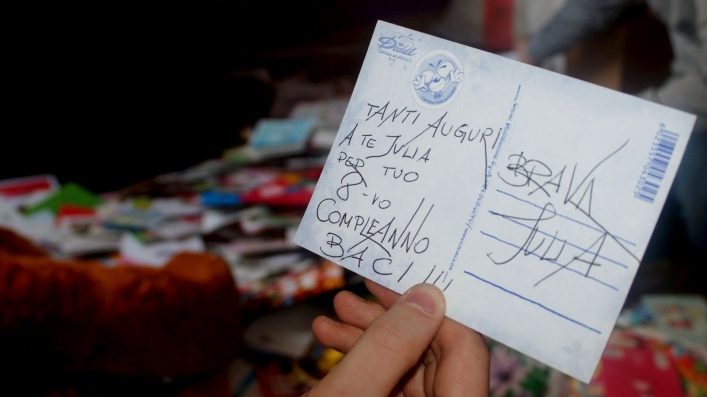 TANTI AUGURI
A TE JULIA
PER TUO
8-VO
COMPLEANNO
BACI !!!
BRAVA
JULIA